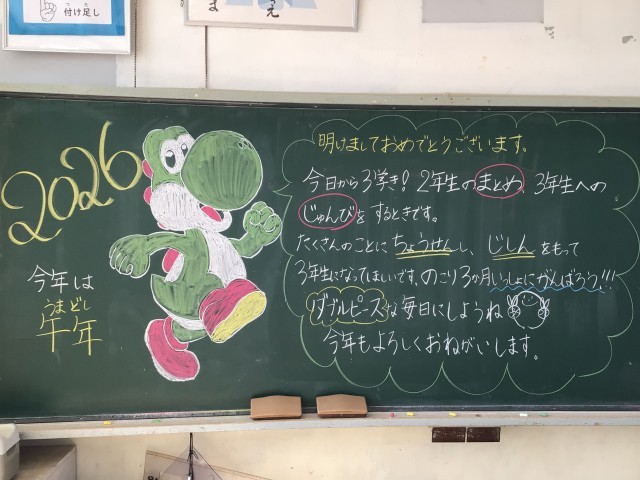 つ た
付け足し
ま
え
2026
今年は
うまどし
午年
明けましておめでとうございます。
今日から3学き！2年生のまとめ、3年生への
じゅんびをするときです。
たくさんのことにちょうせんし、じしんをもって
3年生になってほしいです。のこり3か月いっしょにがんばろう!!!
ダブルピースな毎日にしようね
今年もよろしくおねがいします。